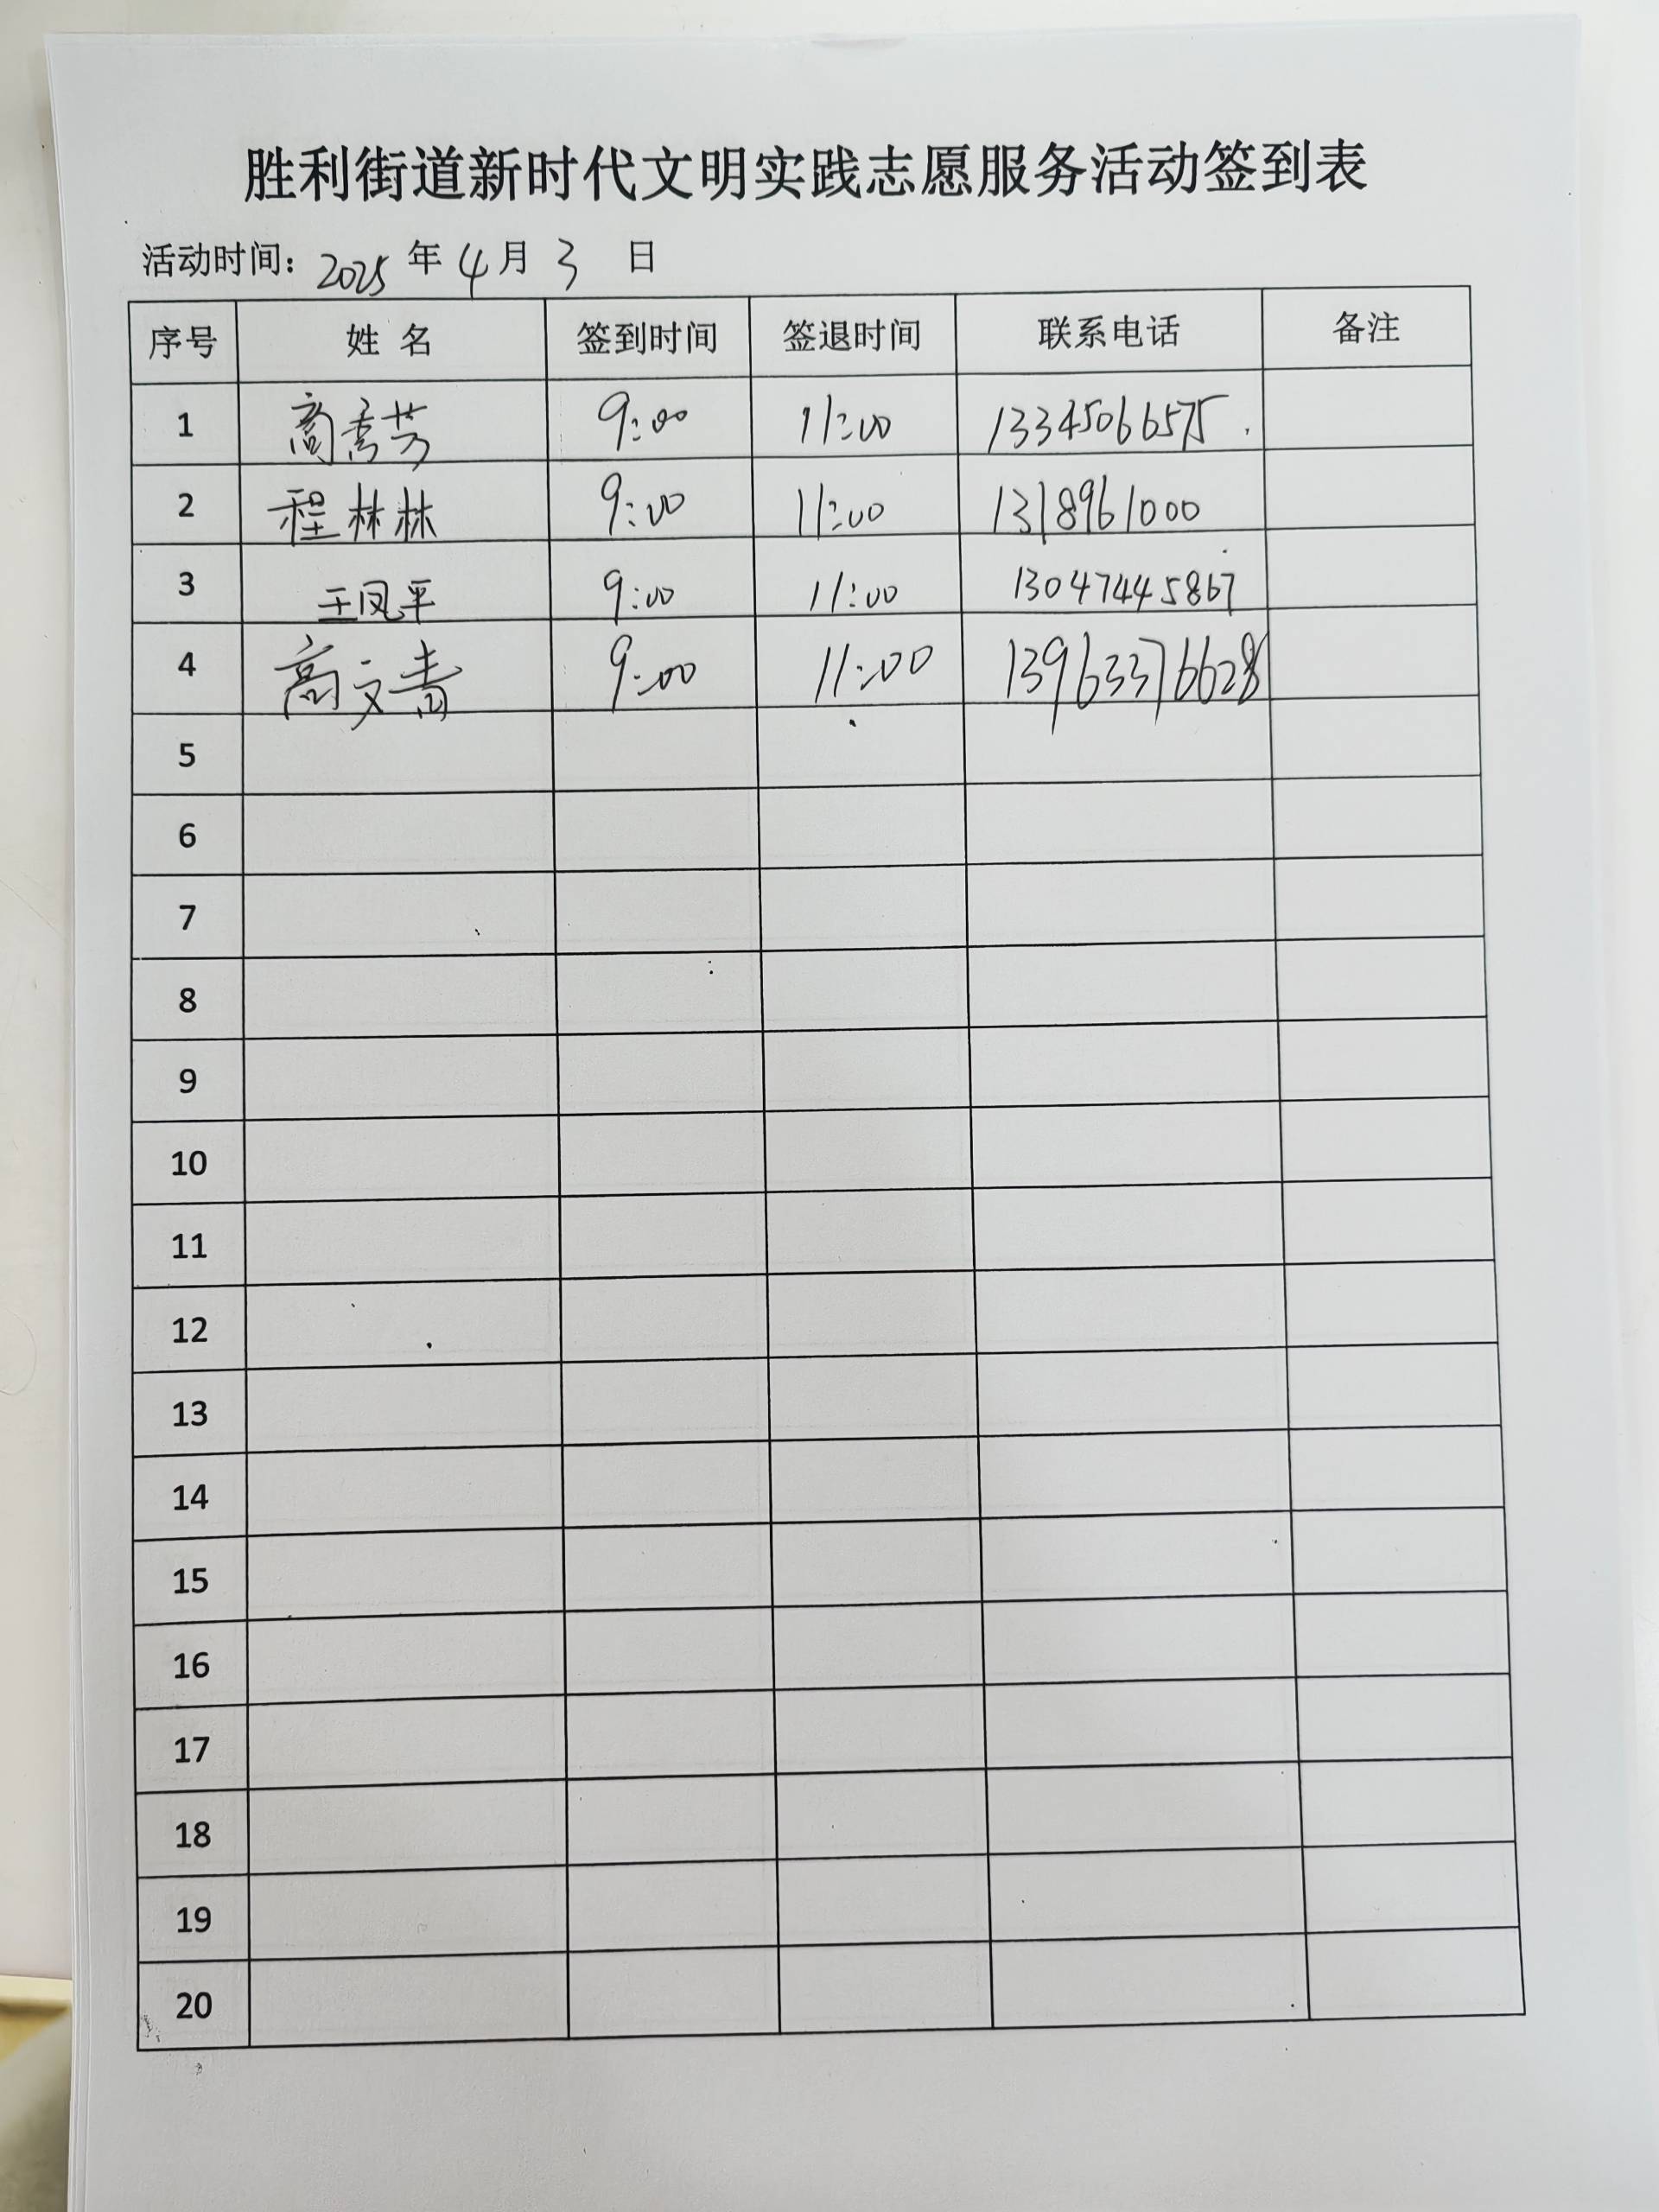 胜利街道新时代文明实践志愿服务活动签到表
活动时间：2025 年 4 月 3 日
序号 姓 名 签到时间 签退时间 联系电话 备注
1 高秀芳 9:00 11:00 13345066575
2 程林林 9:00 11:00 1318961000
3 王凤平 9:00 11:00 13047445867
4 高文青 9:00 11:00 13963376628
5
6
7
8
9
10
11
12
13
14
15
16
17
18
19
20